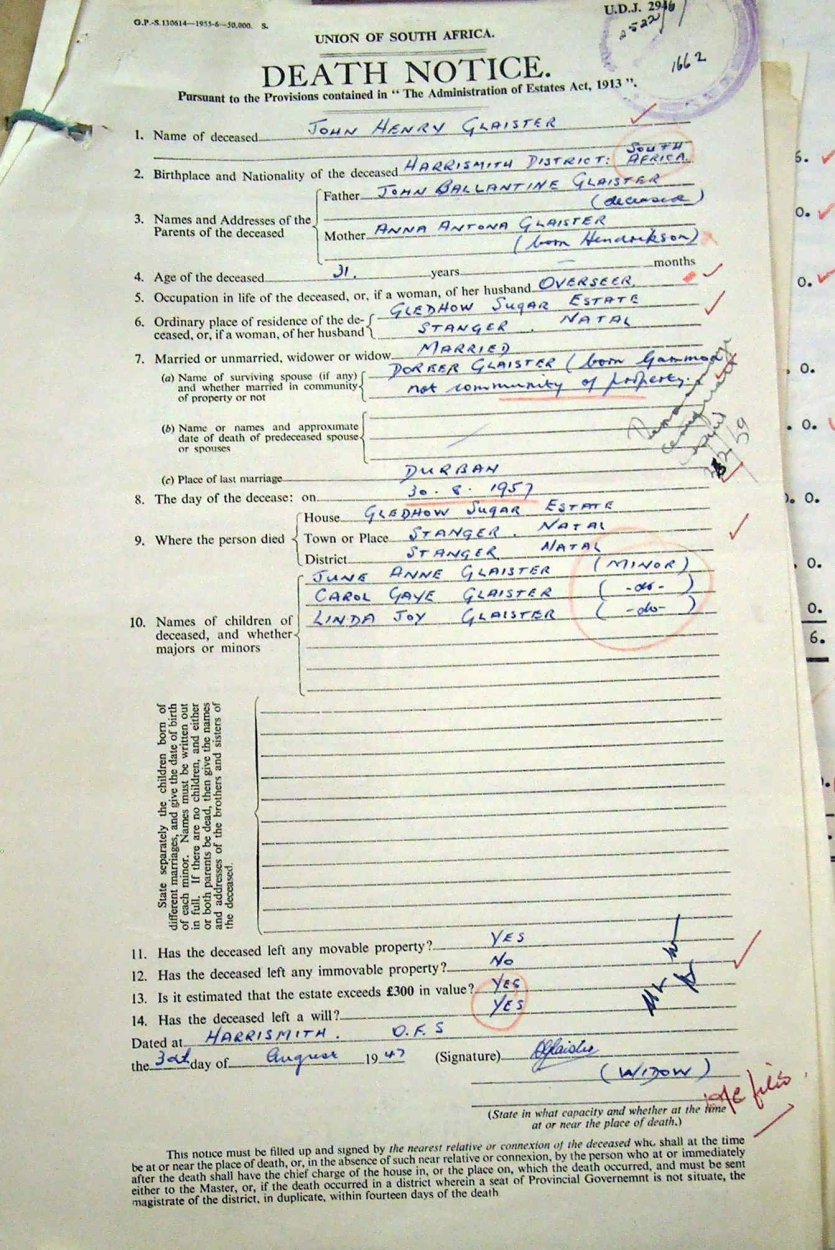 G.P.-S.130614—1955-6—50,000. S.
U.D.J. 2946
2522/
1662
UNION OF SOUTH AFRICA.
DEATH NOTICE.
Pursuant to the Provisions contained in "The Administration of Estates Act, 1913".
1. Name of deceased JOHN HENRY GLAISTER
2. Birthplace and Nationality of the deceased HARRISMITH DISTRICT: SOUTH AFRICA.
3. Names and Addresses of the Parents of the deceased
Father JOHN BALLANTINE GLAISTER
(deceased)
Mother ANNA ANTONA GLAISTER
(born Hendrikson)
4. Age of the deceased 31. years — months
5. Occupation in life of the deceased, or, if a woman, of her husband OVERSEER.
6. Ordinary place of residence of the de-ceased, or, if a woman, of her husband
GLEDHOW SUGAR ESTATE
STANGER. NATAL
7. Married or unmarried, widower or widow MARRIED
(a) Name of surviving spouse (if any) and whether married in community of property or not
GLAISTER (born
not community of property.
(b) Name or names and approximate date of death of predeceased spouse or spouses
(c) Place of last marriage DURBAN
8. The day of the decease: on 30.8.1957
9. Where the person died
House GLEDHOW SUGAR ESTATE
Town or Place STANGER. NATAL
District STANGER NATAL
10. Names of children of deceased, and whether majors or minors
JUNE ANNE GLAISTER (MINOR)
CAROL GAYE GLAISTER (-do-)
LINDA JOY GLAISTER (-do-)
State separately the children born of
different marriages, and give the date of birth
of each minor. Names must be written out
in full. If there are no children, and either
or both parents be dead, then give the names
and addresses of the brothers and sisters of
the deceased.
11. Has the deceased left any movable property? YES
12. Has the deceased left any immovable property? NO
13. Is it estimated that the estate exceeds £300 in value? YES
14. Has the deceased left a will? YES
Dated at HARRISMITH. O.F.S
the day of August 19 (Signature) DGlaister
(WIDOW)
(State in what capacity and whether at the time
at or near the place of death.)
This notice must be filled up and signed by the nearest relative or connexion of the deceased who shall at the time
be at or near the place of death, or, in the absence of such near relative or connexion, by the person who at or immediately
after the death shall have the chief charge of the house in, or the place on, which the death occurred, and must be sent
either to the Master, or, if the death occurred in a district wherein a seat of Provincial Governemnt is not situate, the
magistrate of the district, in duplicate, within fourteen days of the death